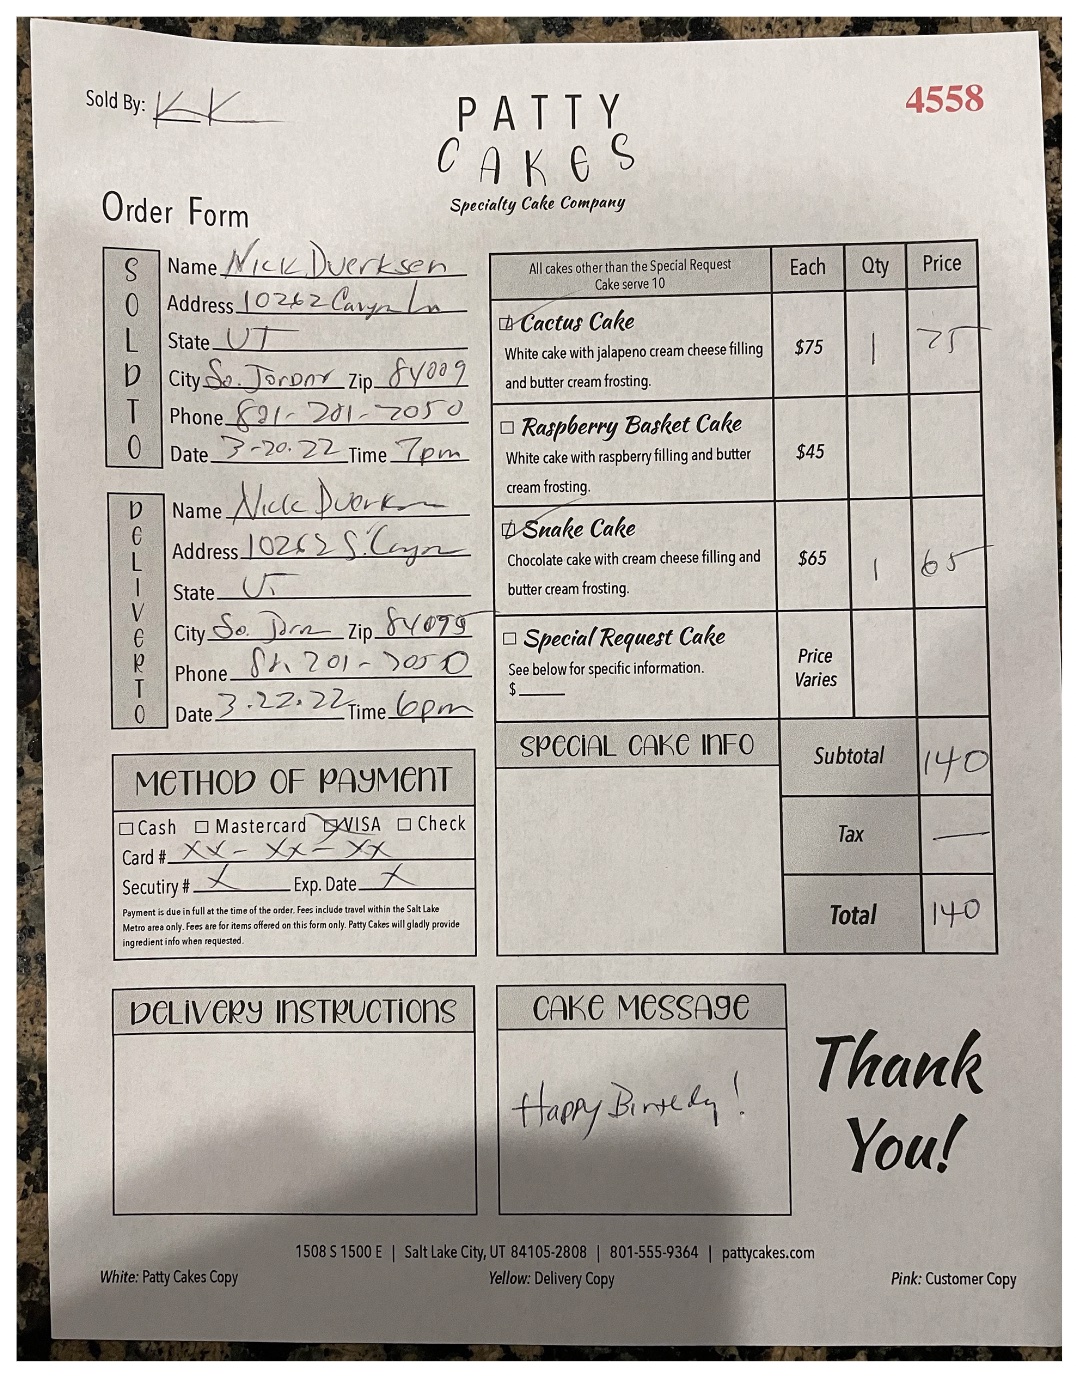 Sold By: KK
4558
PATTY
CAKES
Specialty Cake Company
Order Form
SOLD TO
Name Nick Duerksen
Address 10262 Caryn Ln
State UT
City So. Jordan Zip 84009
Phone 801-201-7050
Date 3-20-22 Time 7pm
DELIVER TO
Name Nick Duerksen
Address 10262 S. Caryn
State UT
City So. Jordan Zip 84095
Phone 801 201-7050
Date 3.22.22 Time 6pm
METHOD OF PAYMENT
Cash Mastercard VISA Check
Card # XX-XX-XX
Secutiry # X Exp. Date X
Payment is due in full at the time of the order. Fees include travel within the Salt Lake
Metro area only. Fees are for items offered on this form only. Patty Cakes will gladly provide
ingredient info when requested.
All cakes other than the Special Request
Cake serve 10
Each Qty Price
Cactus Cake
White cake with jalapeno cream cheese filling
and butter cream frosting.
$75 1 75
Raspberry Basket Cake
White cake with raspberry filling and butter
cream frosting.
$45
Snake Cake
Chocolate cake with cream cheese filling and
butter cream frosting.
$65 1 65
Special Request Cake
See below for specific information.
$
Price
Varies
SPECIAL CAKE INFO
Subtotal 140
Tax —
Total 140
DELIVERY INSTRUCTIONS
CAKE MESSAGE
Happy Birthday!
Thank
You!
1508 S 1500 E | Salt Lake City, UT 84105-2808 | 801-555-9364 | pattycakes.com
White: Patty Cakes Copy
Yellow: Delivery Copy
Pink: Customer Copy